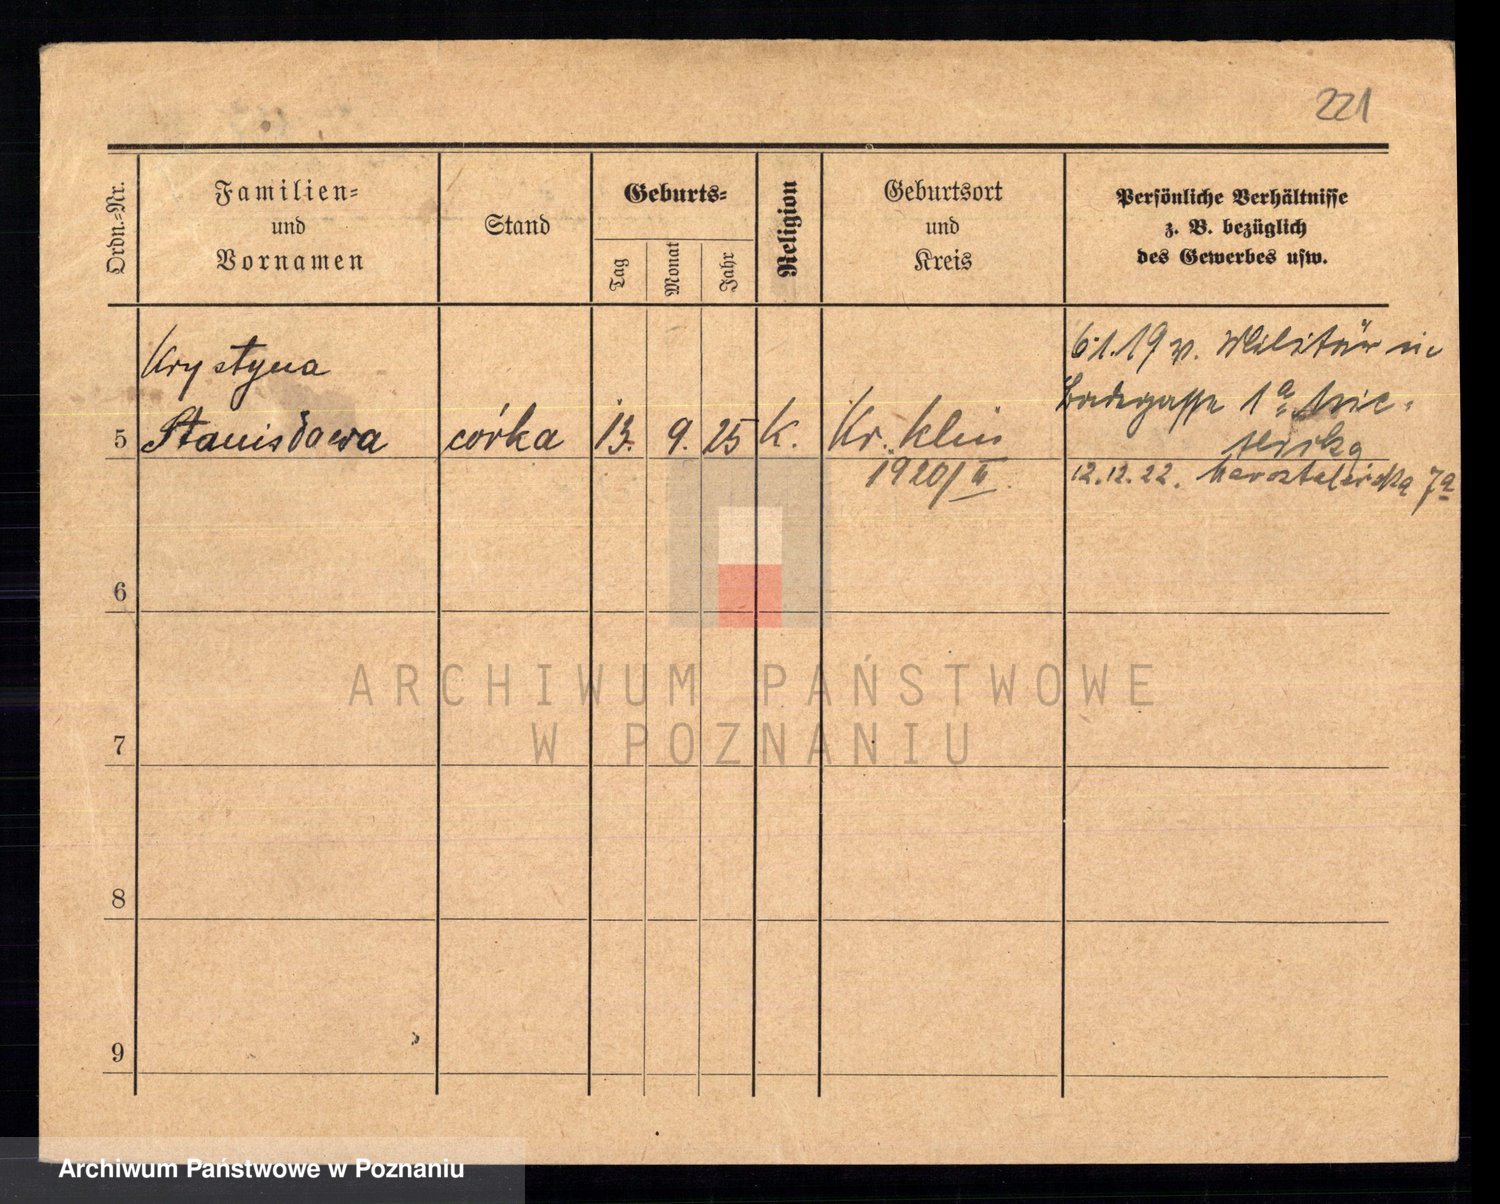 221
Ordn.=Nr.
Familien=
und
Vornamen
Stand
Geburts=
Tag
Monat
Jahr
Religion
Geburtsort
und
Kreis
Persönliche Verhältnisse
z. B. bezüglich
des Gewerbes usw.
Krystyna
5 Stanisława córka 13. 9. 25 K. Kr. klin
1920/II.
6.1.19 v. Militär in
Badegasse 1a
12.12.22. 7a
6
7
8
9
ARCHIWUM PAŃSTWOWE
W POZNANIU
Archiwum Państwowe w Poznaniu